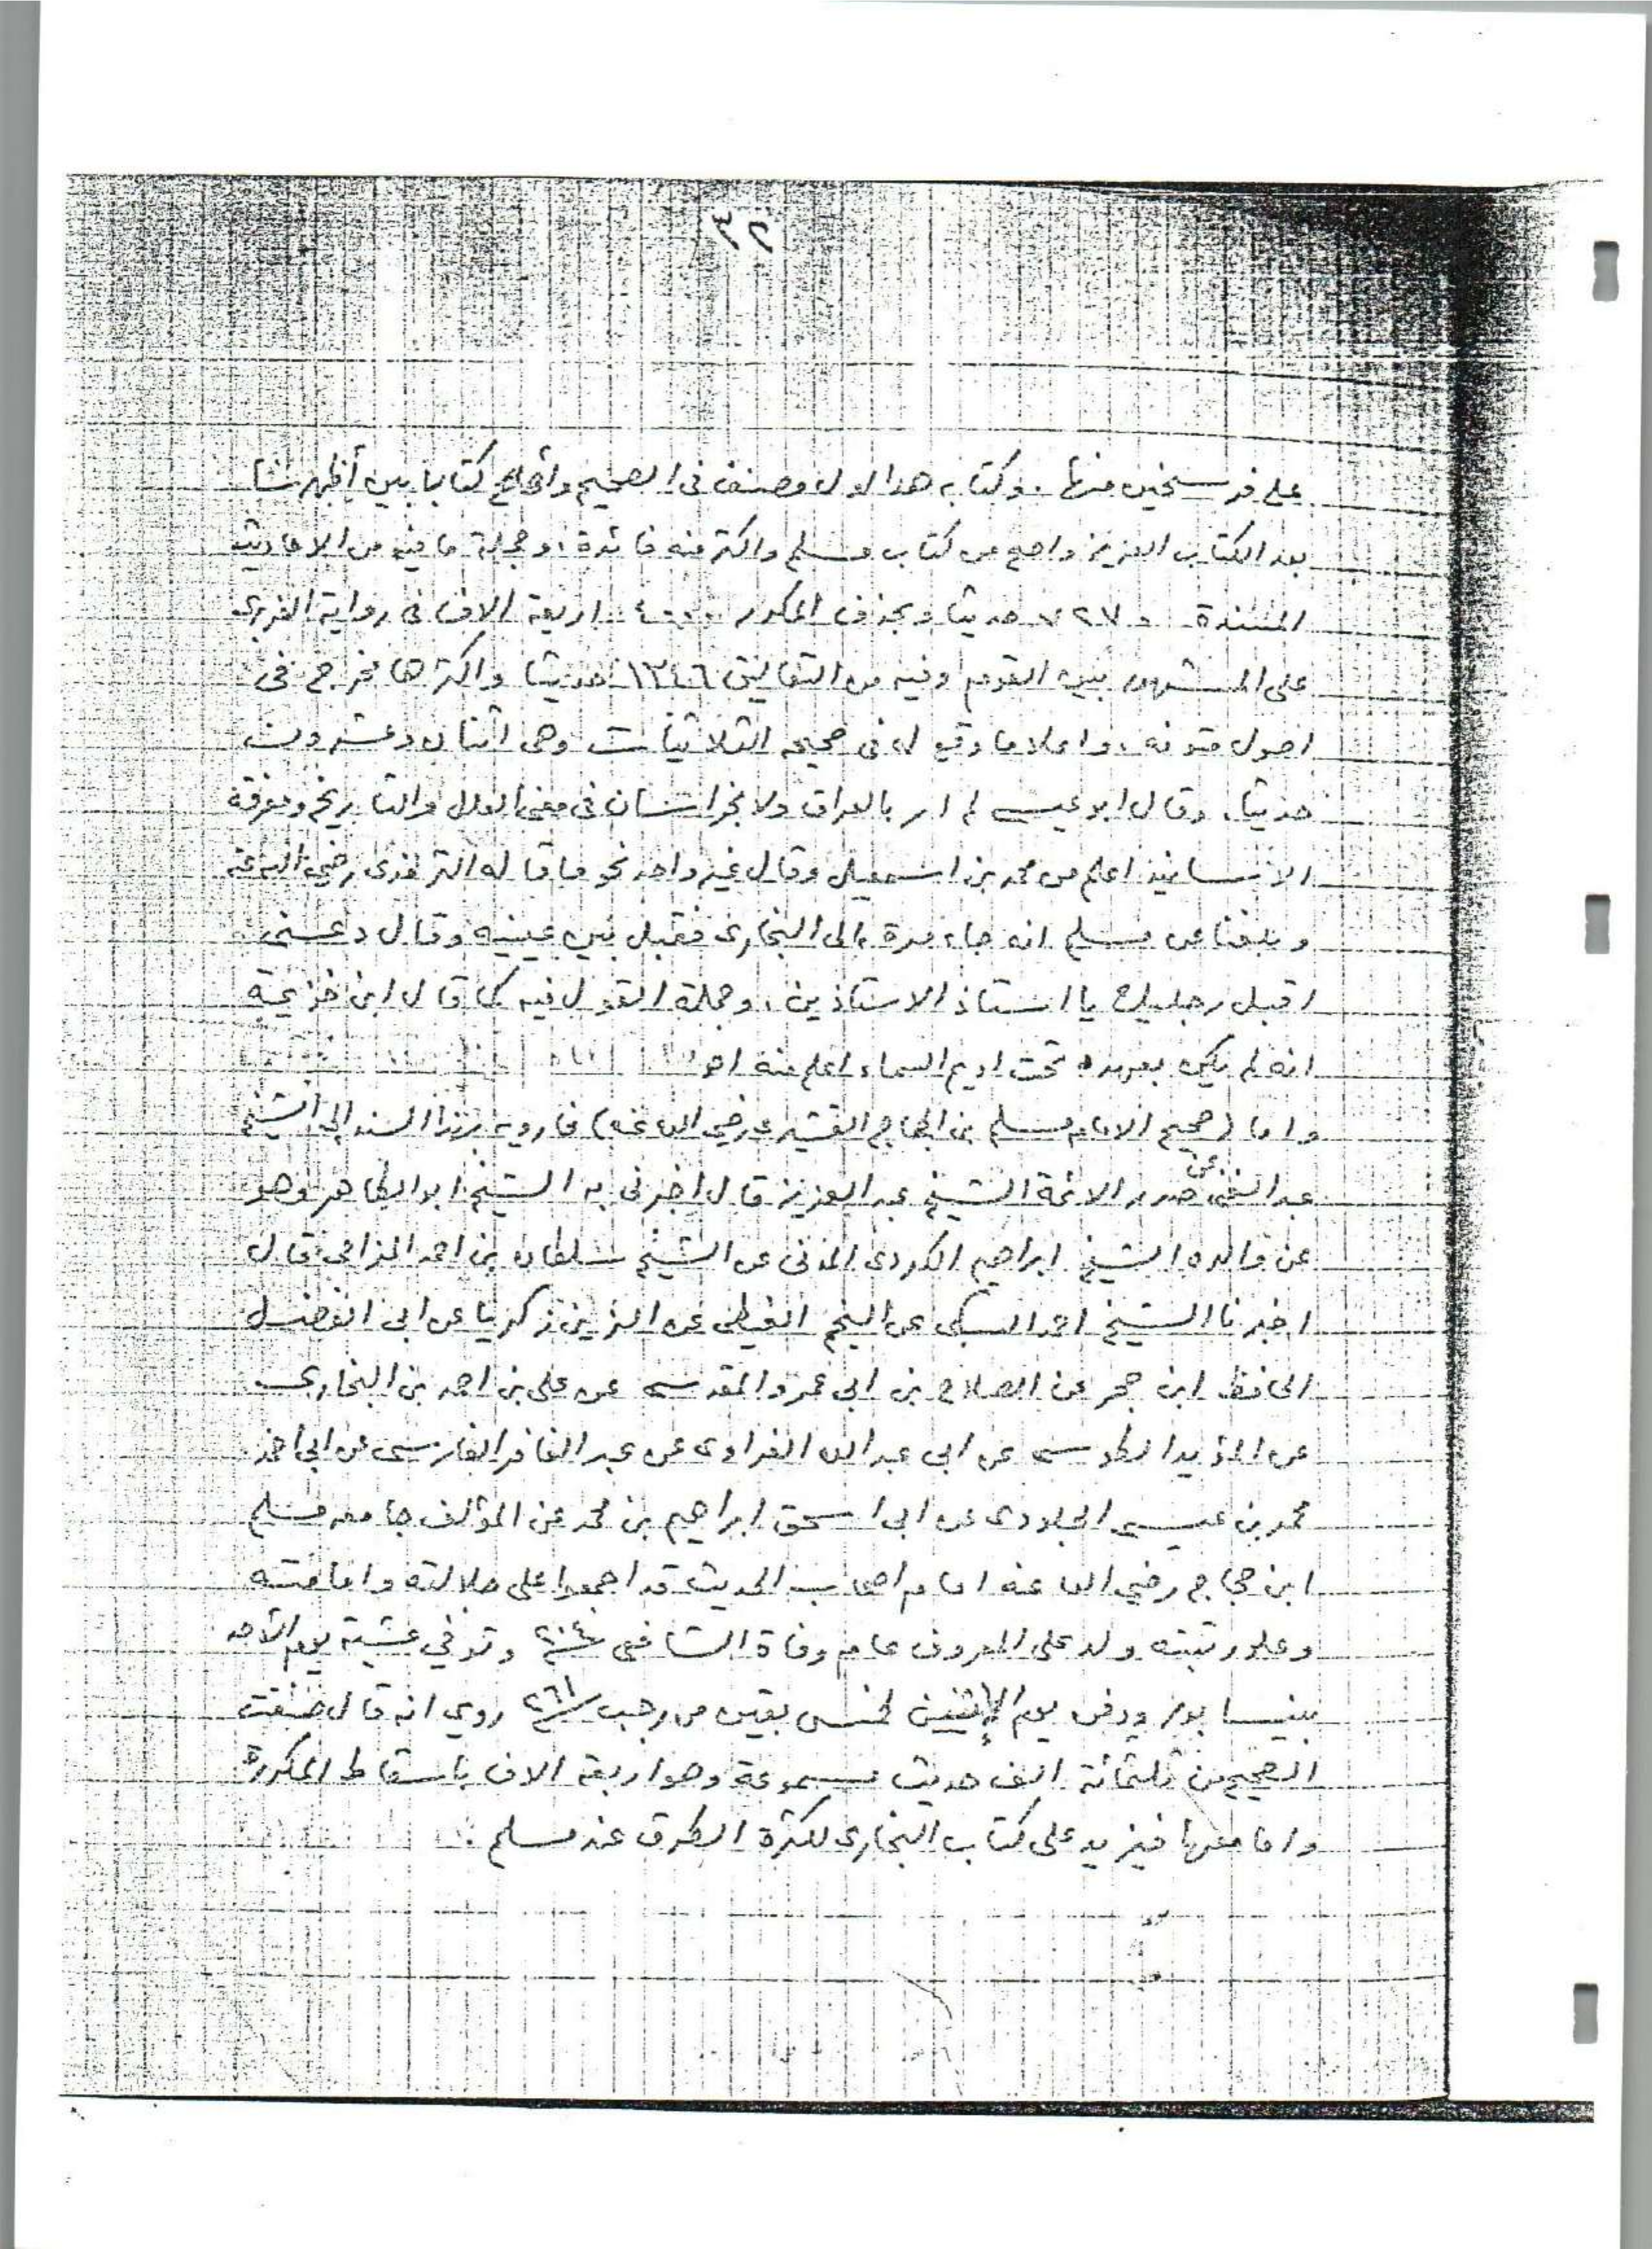 ٤٢
على فرسخين منها. وكتابه هذا اول مصنف في الصحيح واصح كتاب بين أظهرنا
بعد الكتاب العزيز واصح من كتاب مسلم واكثر منه فائدة، وجملة ما فيه من الاحاديث
المسندة ٧٢٧٥ حديثا وبحذف المكرر ٤٠٠٠ اربعة الاف في رواية الفربري
على المشهور بين القوم وفيه من التعاليق ١٣٤٦ حديثا واكثرها مخرج في
اصول متونه، واعلا ما وقع له في صحيحه الثلاثيات وهي اثنان وعشرون
حديثا. وقال ابو عيسى لم ار بالعراق ولا بخراسان في معنى العلل والتاريخ ومعرفة
الاسانيد اعلم من محمد بن اسمعيل وقال غير واحد نحو ما قاله الترمذي رضي الله عنه
وبلغنا عن مسلم انه جاء مرة الى البخاري فقبل بين عينيه وقال دعني
اقبل رجليك يا استاذ الاستاذين، وجملة القول فيه كما قال ابن خزيمة
انه لم يكن بعهده تحت اديم السماء اعلم منه اهـ
واما (صحيح الامام مسلم بن الحجاج القشيري رضي الله عنه) فارويه بهذا السند الى الشيخ
عبد الغني عن صدر الائمة الشيخ عبد العزيز قال اخبرني به الشيخ ابو الطاهر وهو
عن والده الشيخ ابراهيم الكردي المدني عن الشيخ سلطان بن احمد المزاحي قال
اخبرنا الشيخ احمد السبكي عن النجم الغيطي عن الزين زكريا عن ابي الفضل
الحافظ ابن حجر عن الصلاح بن ابي عمرو المقدسي عن علي بن احمد بن البخاري
عن المؤيد الطوسي عن ابي عبد الله الفراوي عن عبد الغافر الفارسي عن ابي احمد
محمد بن عيسى الجلودي عن ابي اسحق ابراهيم بن محمد عن المؤلف جامعه مسلم
ابن حجاج رضي الله عنه امام اصحاب الحديث قد اجمعوا على جلالته وامامته
وعلو رتبته ولد على المعروف عام وفاة الشافعي ٢٠٤ وتوفي عشية يوم الأحد
بنيسابور ودفن يوم الإثنين لخمس بقين من رجب ٢٦١ روي انه قال صنفت
الصحيح من ثلثمائة الف حديث مسموعة وهو اربعة الاف باسقاط المكررة
واما معها فيزيد على كتاب البخاري لكثرة الطرق عند مسلم